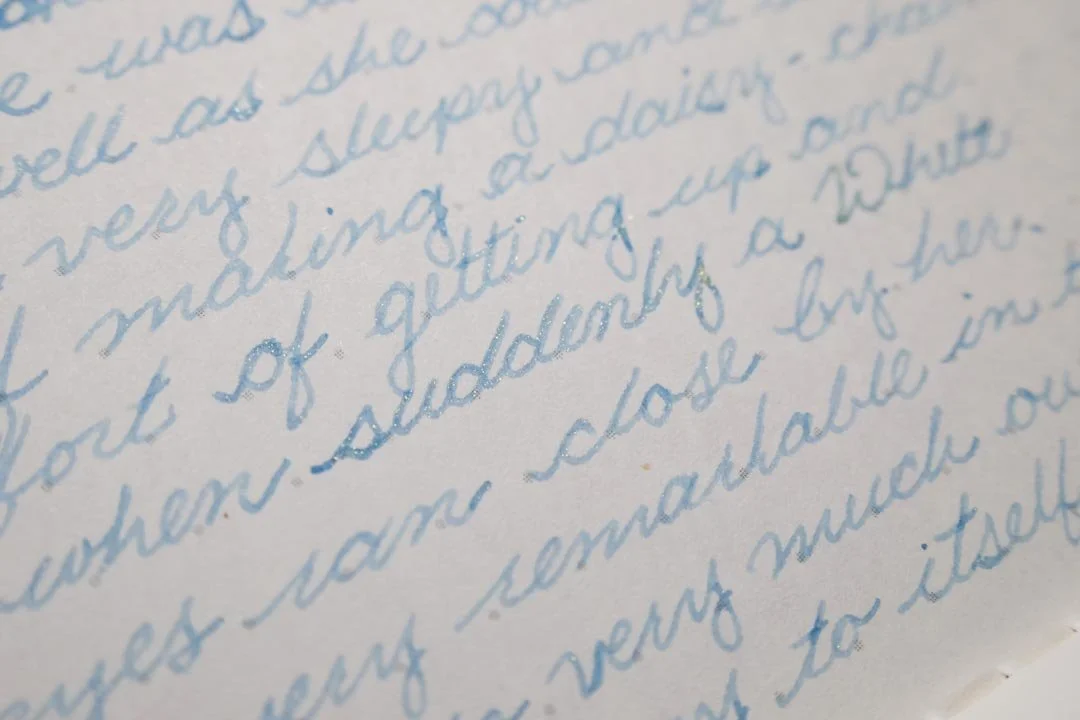 was
well as she
very sleepy and
making a daisy-chain
fort of getting up and
when suddenly a White
eyes ran close by her.
very remarkable in
very much
to itself